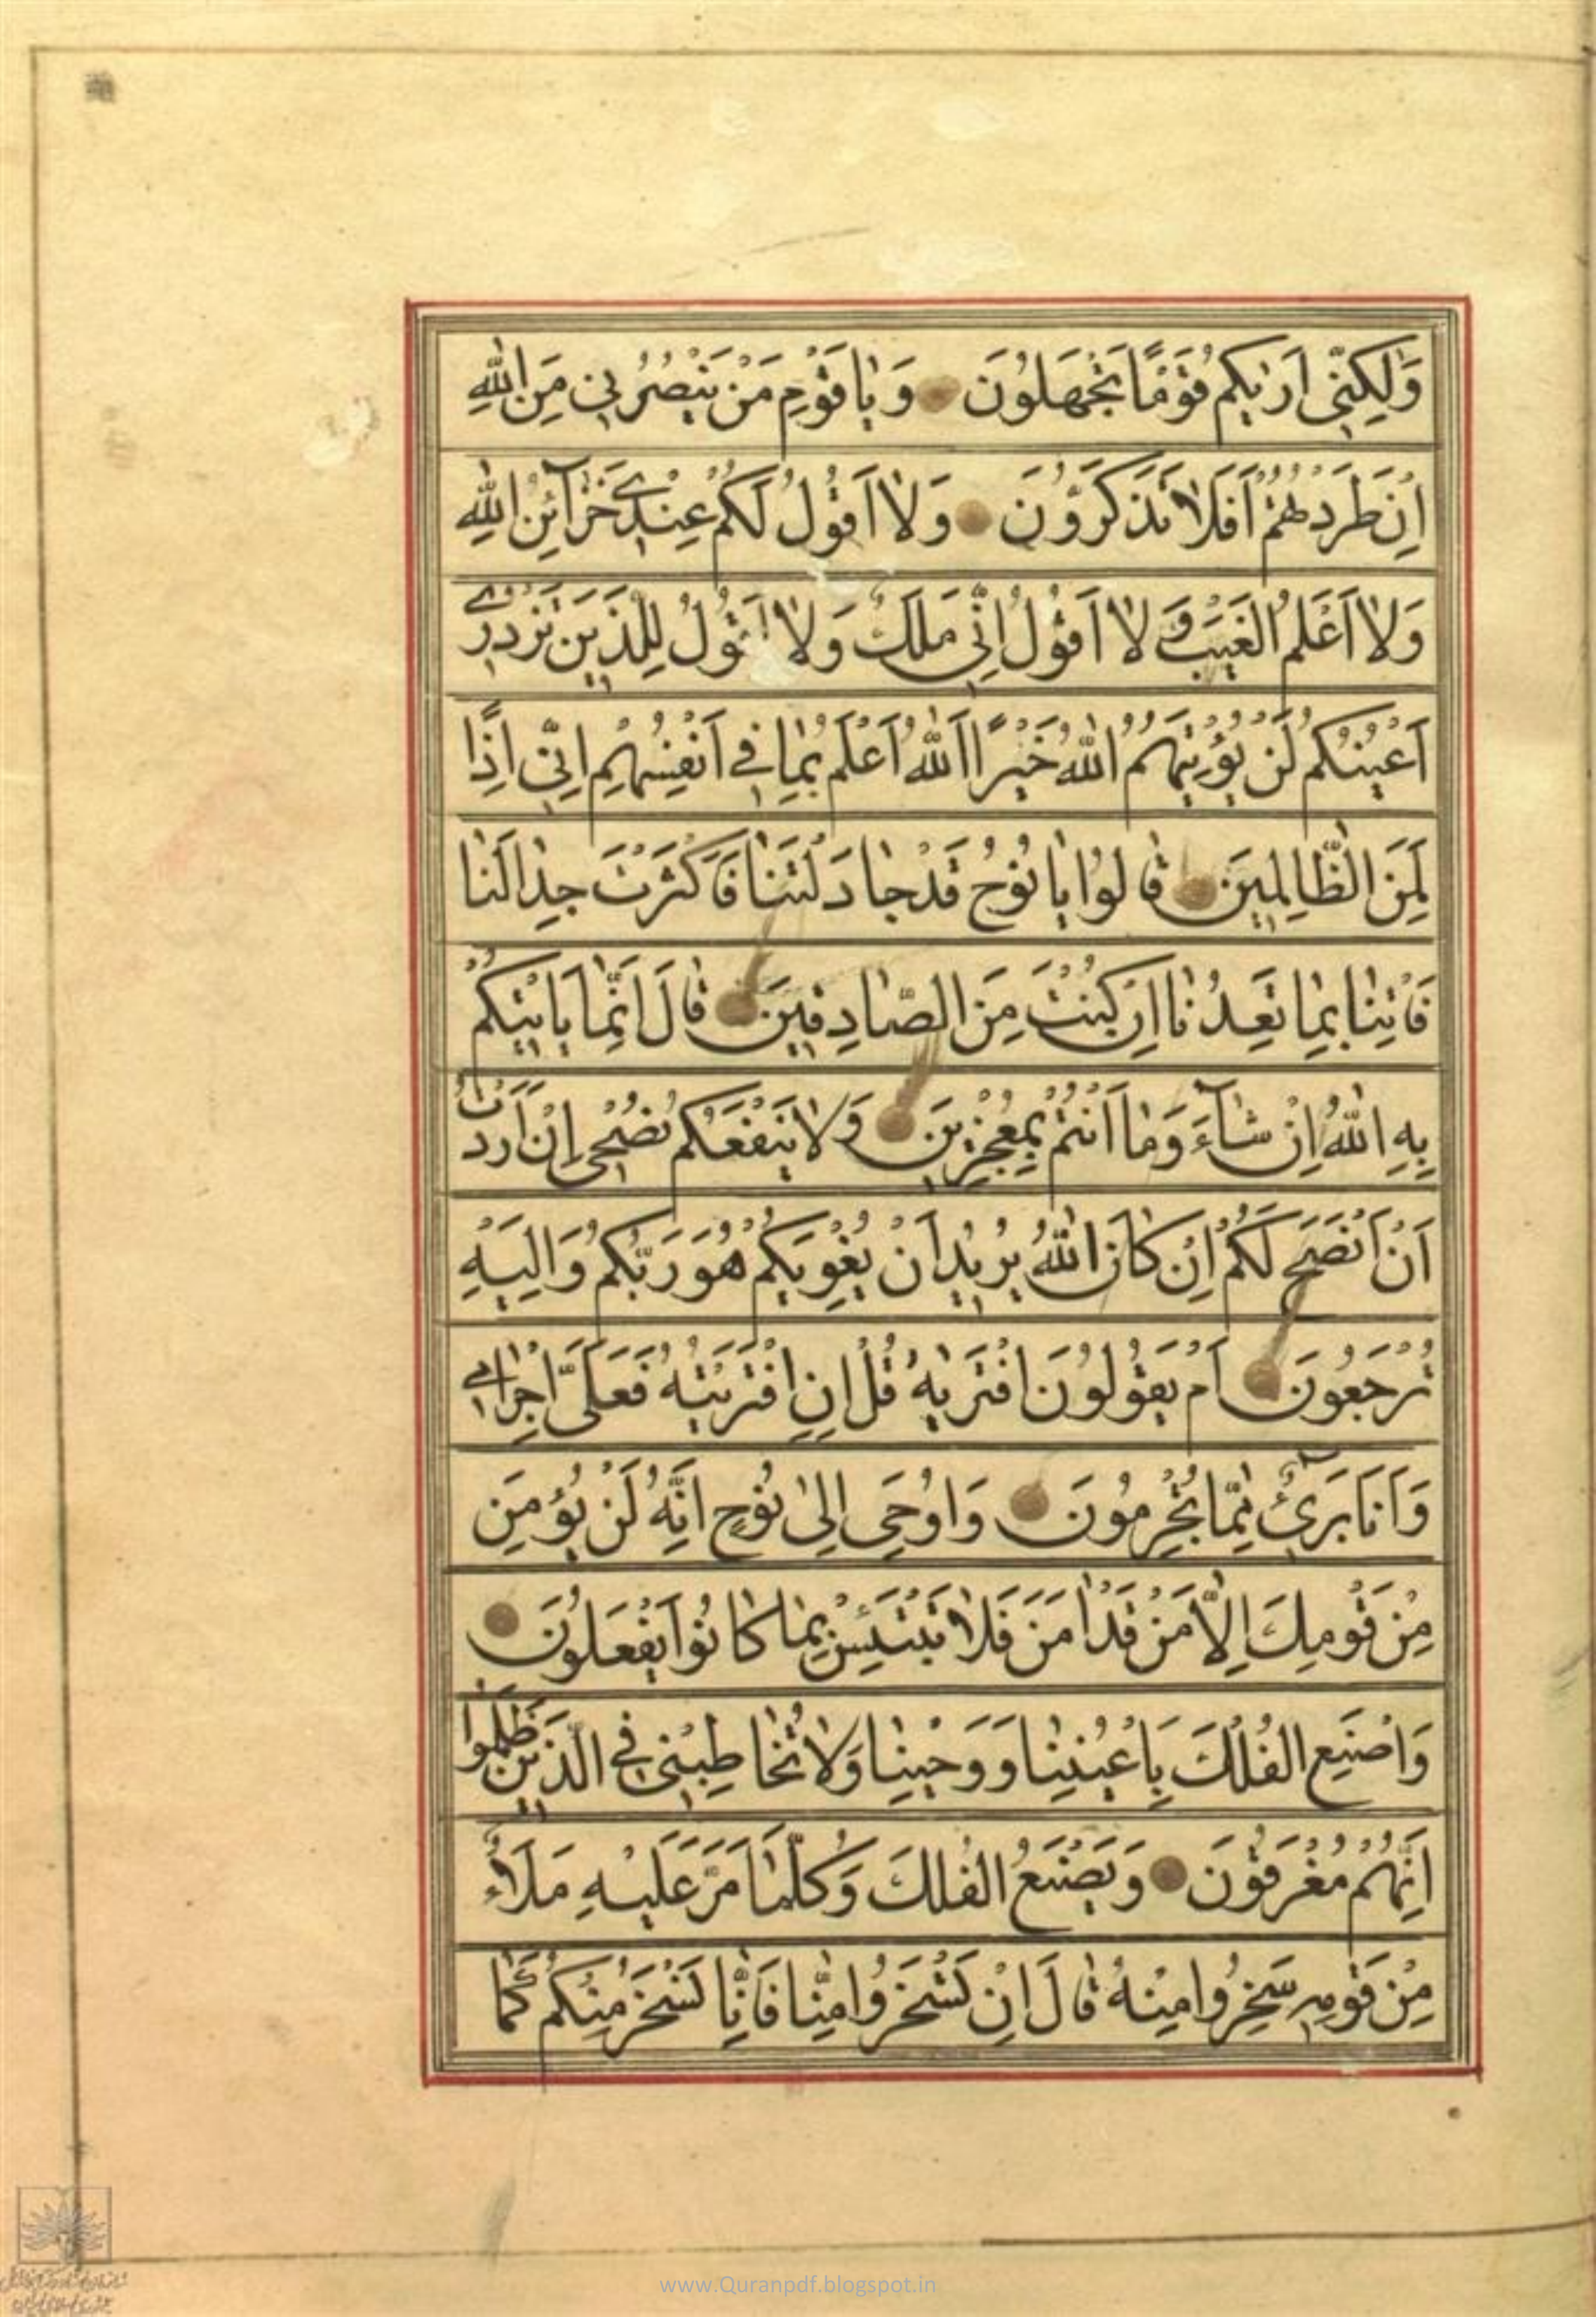 وَلٰكِنّى اَرٰيكُم قَوْمًا تَجْهَلُونَ وَ يٰا قَوْمِ مَنْ يَنْصُرُنِى مِنَ اللّٰهِ
اِنْ طَرَدْتُهُمْ اَفَلٰا تَذَكَّرُونَ وَ لٰا اَقُولُ لَكُمْ عِنْدِى خَزٰآئِنُ اللّٰهِ
وَلٰا اَعْلَمُ الغَيْبَ وَ لٰا اَقُولُ اِنّى مَلَكٌ وَ لٰا اَقُولُ لِلَّذِينَ تَزْدَرِى
اَعْيُنُكُم لَنْ يُؤْتِيَهُمُ اللّٰهُ خَيْرًا اَللّٰهُ اَعْلَمُ بِمٰا فِى اَنْفُسِهِمْ اِنّى اِذًا
لَمِنَ الظّٰالِمِينَ قٰالُوا يٰا نُوحُ قَدْ جٰادَلْتَنٰا فَاَكْثَرْتَ جِدٰالَنٰا
فَاْتِنٰا بِمٰا تَعِدُنٰا اِنْ كُنْتَ مِنَ الصّٰادِقِينَ قٰالَ اِنَّمٰا يَاْتِيكُمْ
بِهِ اللّٰهُ اِنْ شٰآءَ وَ مٰا اَنْتُمْ بِمُعْجِزِينَ وَ لٰا يَنْفَعُكُم نُصْحِى اِنْ اَرَدْتُ
اَنْ اَنْصَحَ لَكُمْ اِنْ كٰانَ اللّٰهُ يُرِيدُ اَنْ يُغْوِيَكُمْ هُوَ رَبُّكُمْ وَ اِلَيْهِ
تُرْجَعُونَ اَمْ يَقُولُونَ افْتَرٰيهُ قُلْ اِنِ افْتَرَيْتُهُ فَعَلَىَّ اِجْرٰامى
وَ اَنَا بَرِىٓءٌ مِمّٰا تُجْرِمُونَ وَ اُوحِىَ اِلىٰ نُوحٍ اَنَّهُ لَنْ يُؤْمِنَ
مِنْ قَوْمِكَ اِلّٰا مَنْ قَدْ اٰمَنَ فَلٰا تَبْتَئِسْ بِمٰا كٰانُوا يَفْعَلُونَ
وَ اصْنَعِ الفُلْكَ بِاَعْيُنِنٰا وَ وَحْيِنٰا وَ لٰا تُخٰاطِبْنِى فِى الَّذِينَ ظَلَمُوا
اِنَّهُمْ مُغْرَقُونَ وَ يَصْنَعُ الفُلْكَ وَ كُلَّمٰا مَرَّ عَلَيْهِ مَلَأٌ
مِنْ قَوْمِهِ سَخِرُوا مِنْهُ قٰالَ اِنْ تَسْخَرُوا مِنّٰا فَاِنّٰا نَسْخَرُ مِنْكُمْ كَمٰا
www.Quranpdf.blogspot.in